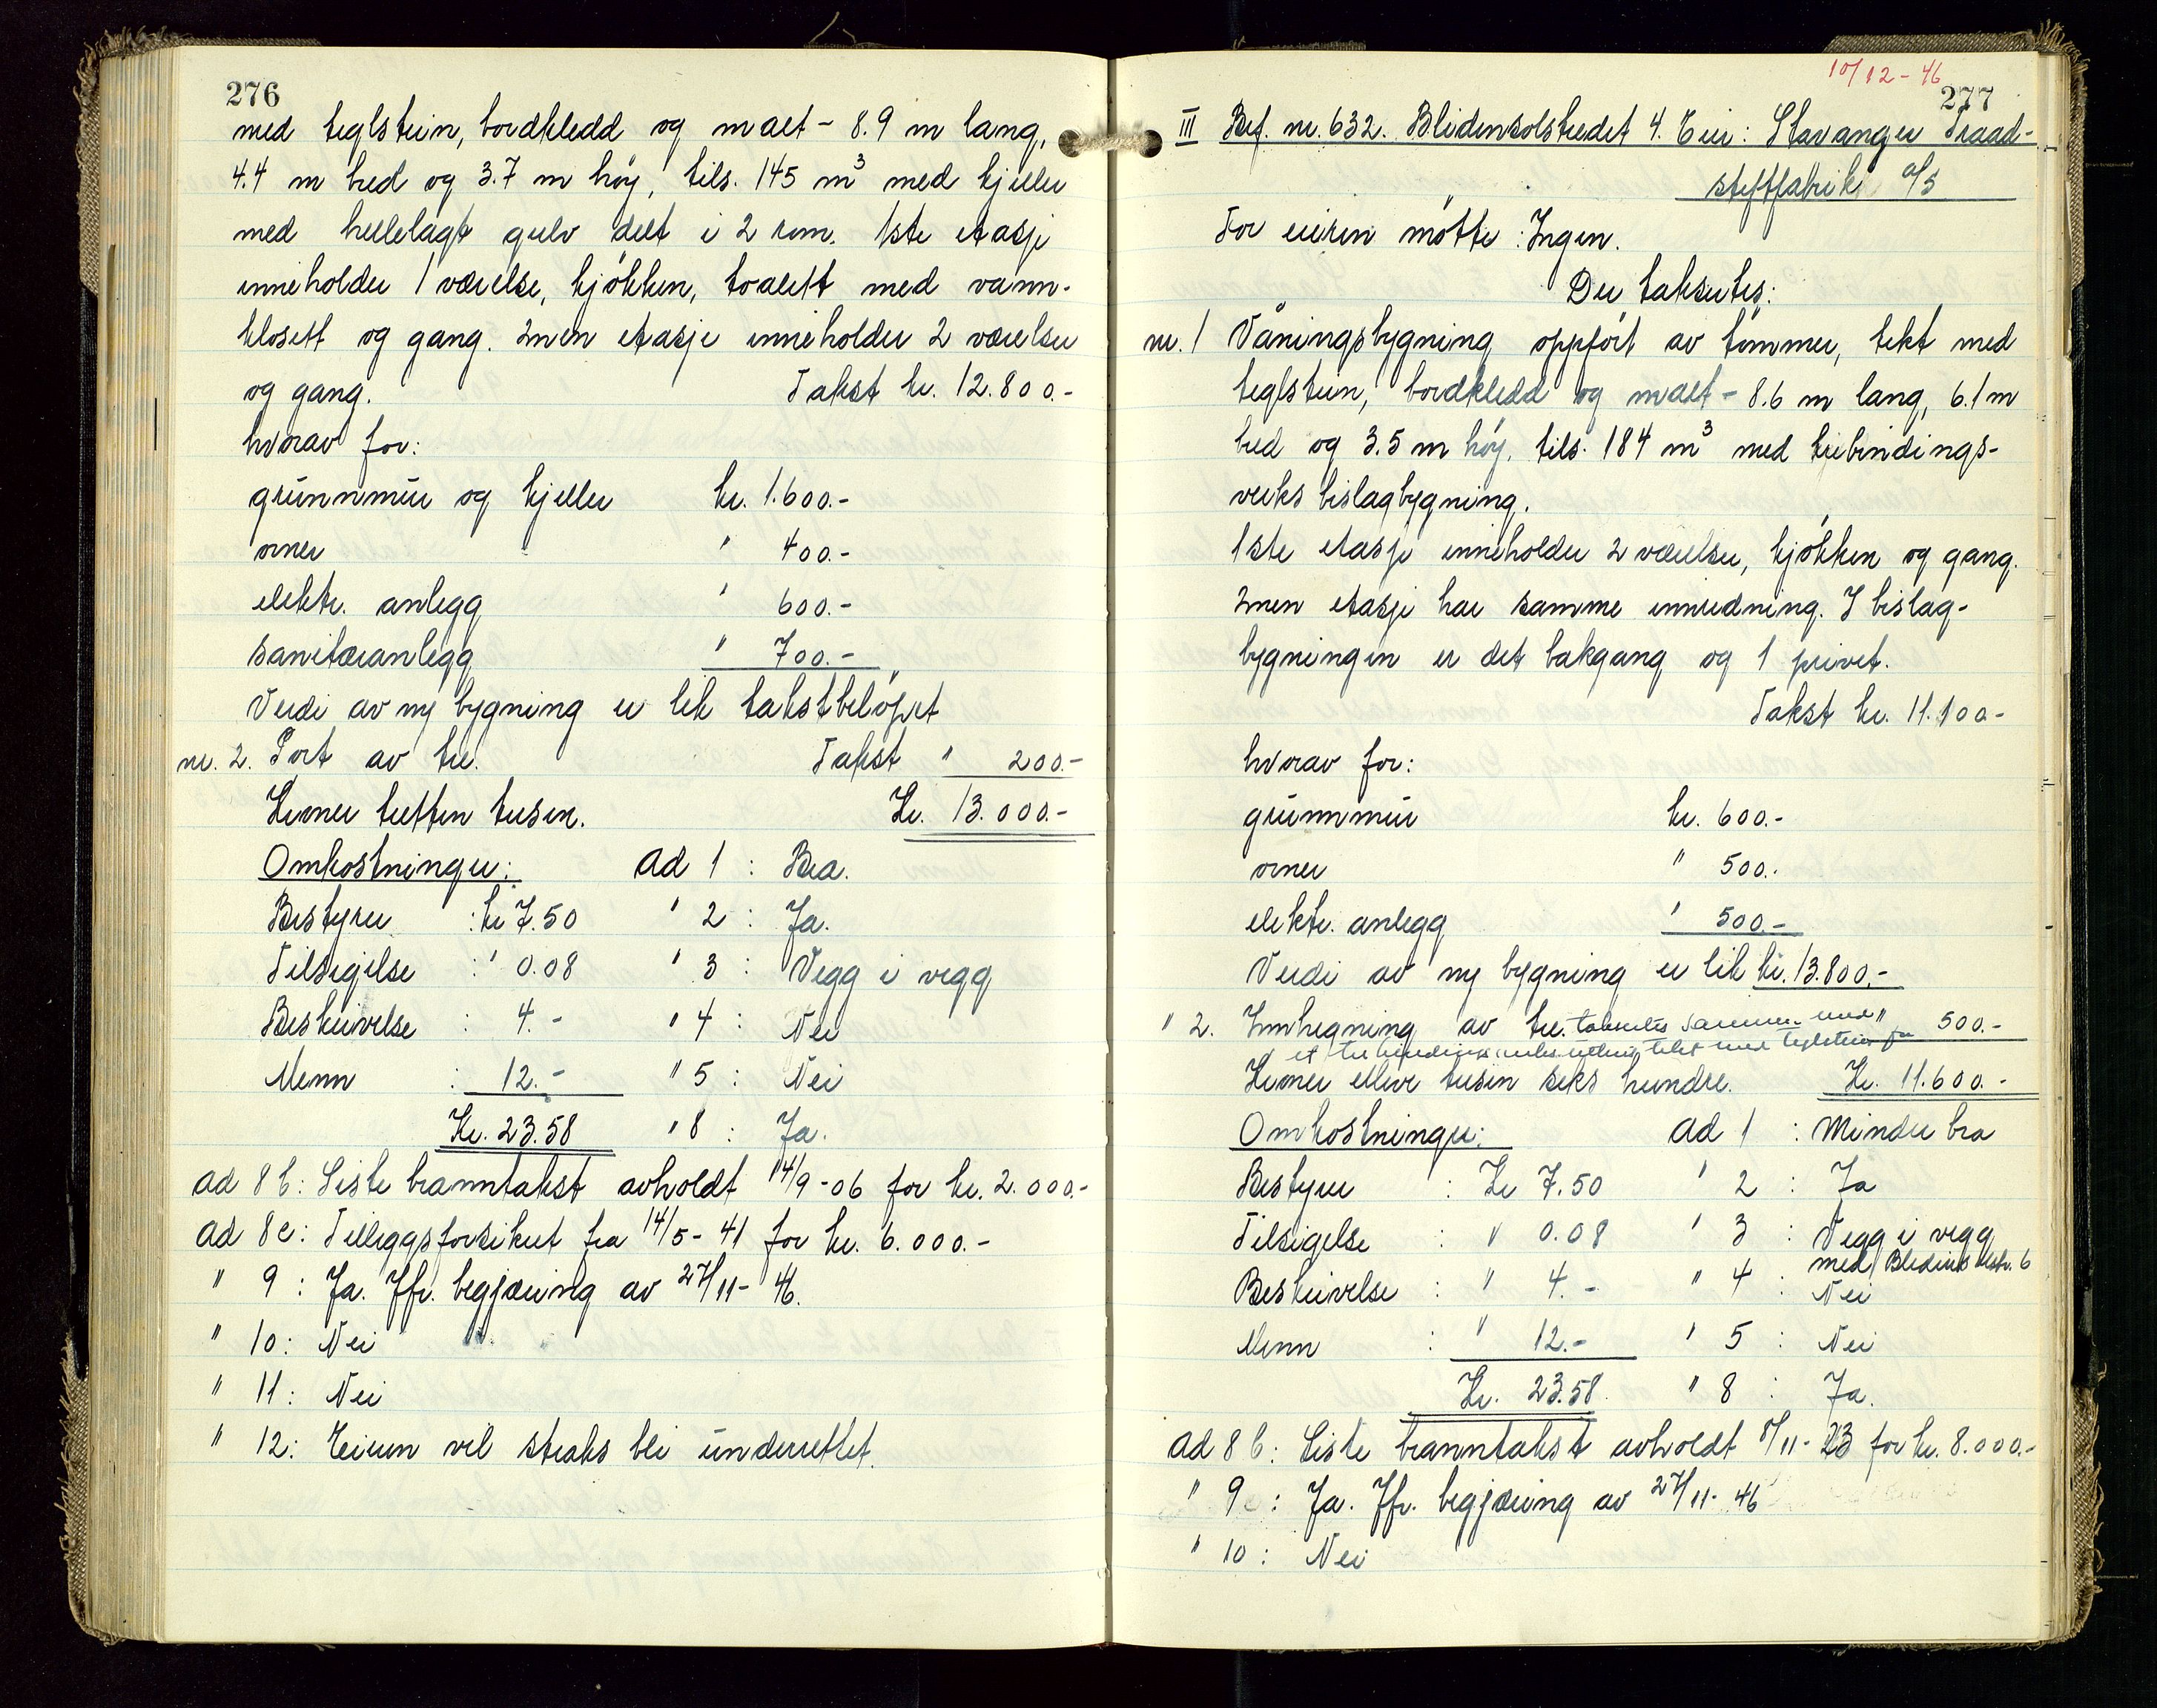 276
med teglstein, bordkledd og malt - 8.9 m lang,
4.4 m bred og 3.7 m höy, tils. 145 m³ med kjeller
med hellelagt gulv delt i 2 rom. 1ste etasje
inneholder 1 værelse, kjökken, toalett med vann-
klosett og gang. 2nen etasje inneholder 2 værelser
og gang. Takst kr. 12.800.-
hvorav for:
grunnmur og kjeller kr. 1.600.-
ovner " 400.-
elektr. anlegg " 600.-
sanitæranlegg " 700.-
Verdi av ny bygning er lik takstbelöpet
nr. 2. Port av tre. Takst " 200.-
Kroner tretten tusen. Kr. 13.000.-
Omkostninger: ad 1 : Bra.
Bestyrer : kr 7.50 " 2 : Ja.
Tilsigelse : " 0.08 " 3 : Vegg i vegg
Beskrivelse : 4.- " 4 : Nei
Menn : 12.- " 5 : Nei
Kr. 23.58 " 8 : Ja.
ad 8 b: Siste branntakst avholdt 14/9-06 for kr. 2.000.-
ad 8c: Tilleggsforsikret fra 14/5-41 for kr. 6.000.-
" 9 : Ja. Jfr. begjæring av 27/11-46.
" 10: Nei
" 11: Nei
" 12: Eieren vil straks bli underrettet.
10/12-46
277
III Brf. nr. 632. Blidensolstredet 4. Eier: Stavanger Traad-
stiftfabrik a/s
For eieren mötte: Ingen.
Der takseres:
nr. 1 Våningsbygning oppfört av tömmer, tekt med
teglstein, bordkledd og malt - 8.6 m lang, 6.1 m
bred og 3.5 m höy, tils. 184 m³ med trebindings-
verks bislagbygning.
1ste etasje inneholder 2 værelser, kjökken og gang.
2nen etasje har samme innredning. I bislag-
bygningen er det bakgang og 1 privet.
Takst kr. 11.100.-
hvorav for:
grunnmur kr. 600.-
ovner " 500.-
elektr. anlegg " 500.-
Verdi av ny bygning er lik kr. 13.800.-
" 2. Innhegning av tre. takseres sammen med " 500.-
et trebindingsverks uthus, tekt med teglstein for
Kroner elleve tusen seks hundre. Kr. 11.600.-
Omkostninger: ad 1 : Mindre bra
Bestyrer : Kr 7.50 " 2 : Ja
Tilsigelse : " 0.08 " 3 : Vegg i vegg
med Blidens.str. 6
Beskrivelse : " 4.- " 4 : Nei
Menn : " 12.- " 5 : Nei
Kr. 23.58. " 8 : Ja.
ad 8 b: Siste branntakst avholdt 8/11-23 for kr. 8.000.-
" 9 : Ja. Jfr. begjæring av 27/11-46
" 10 : Nei